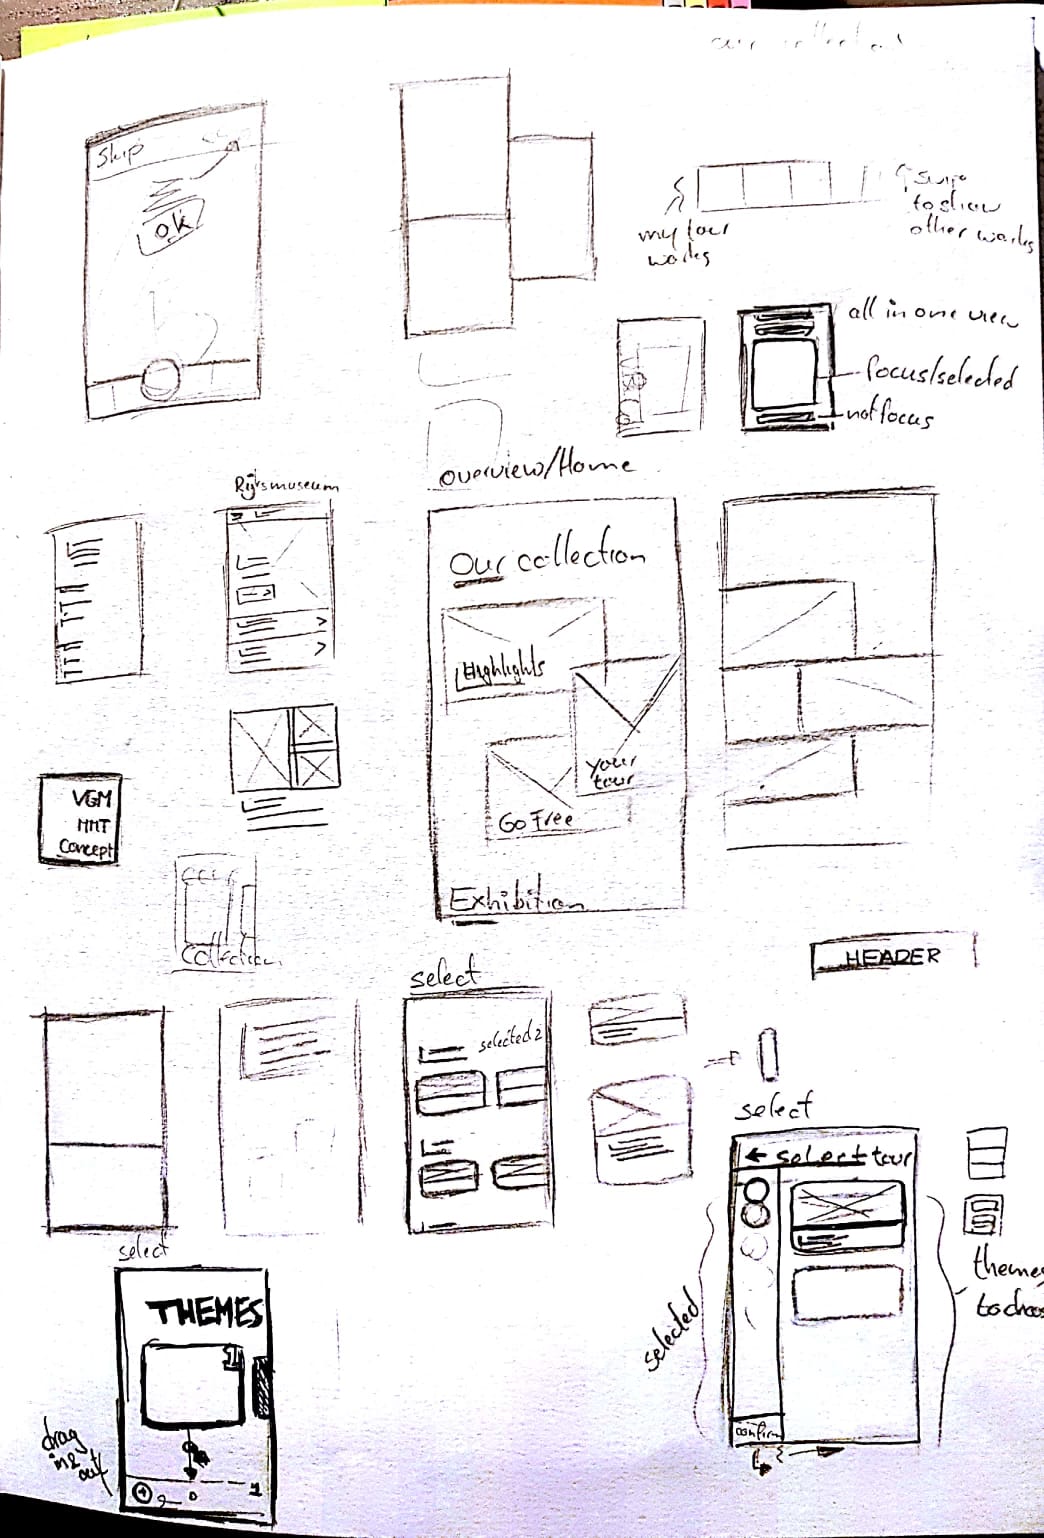 our collection
Skip
OK
my tour
works
swipe
to show
other works
all in one view
focus/selected
not focus
Rijksmuseum
overview/Home
Our collection
Highlights
your
tour
Go Free
Exhibition
VGM
MMT
Concept
Collection
HEADER
select
selected 2
select
← select tour
selected
themes
confirm
select
THEMES
1
drag
in &
out
1